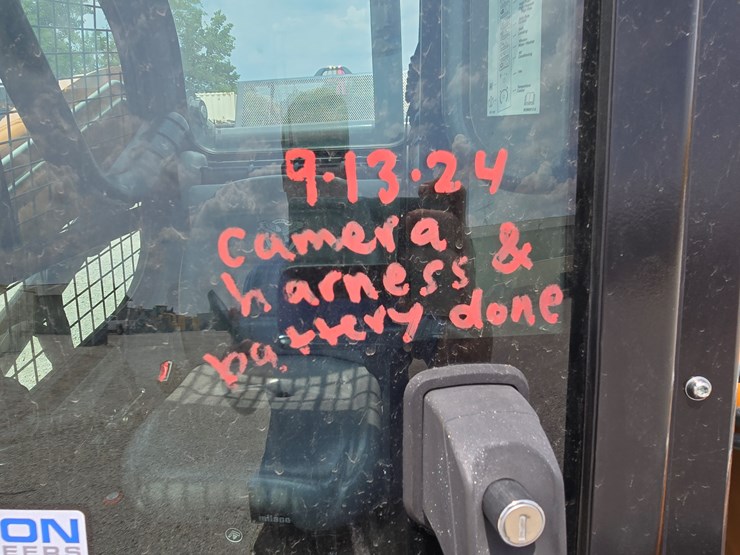 9.13.24
camera &
harness
battery done
milsco
ON
EERS